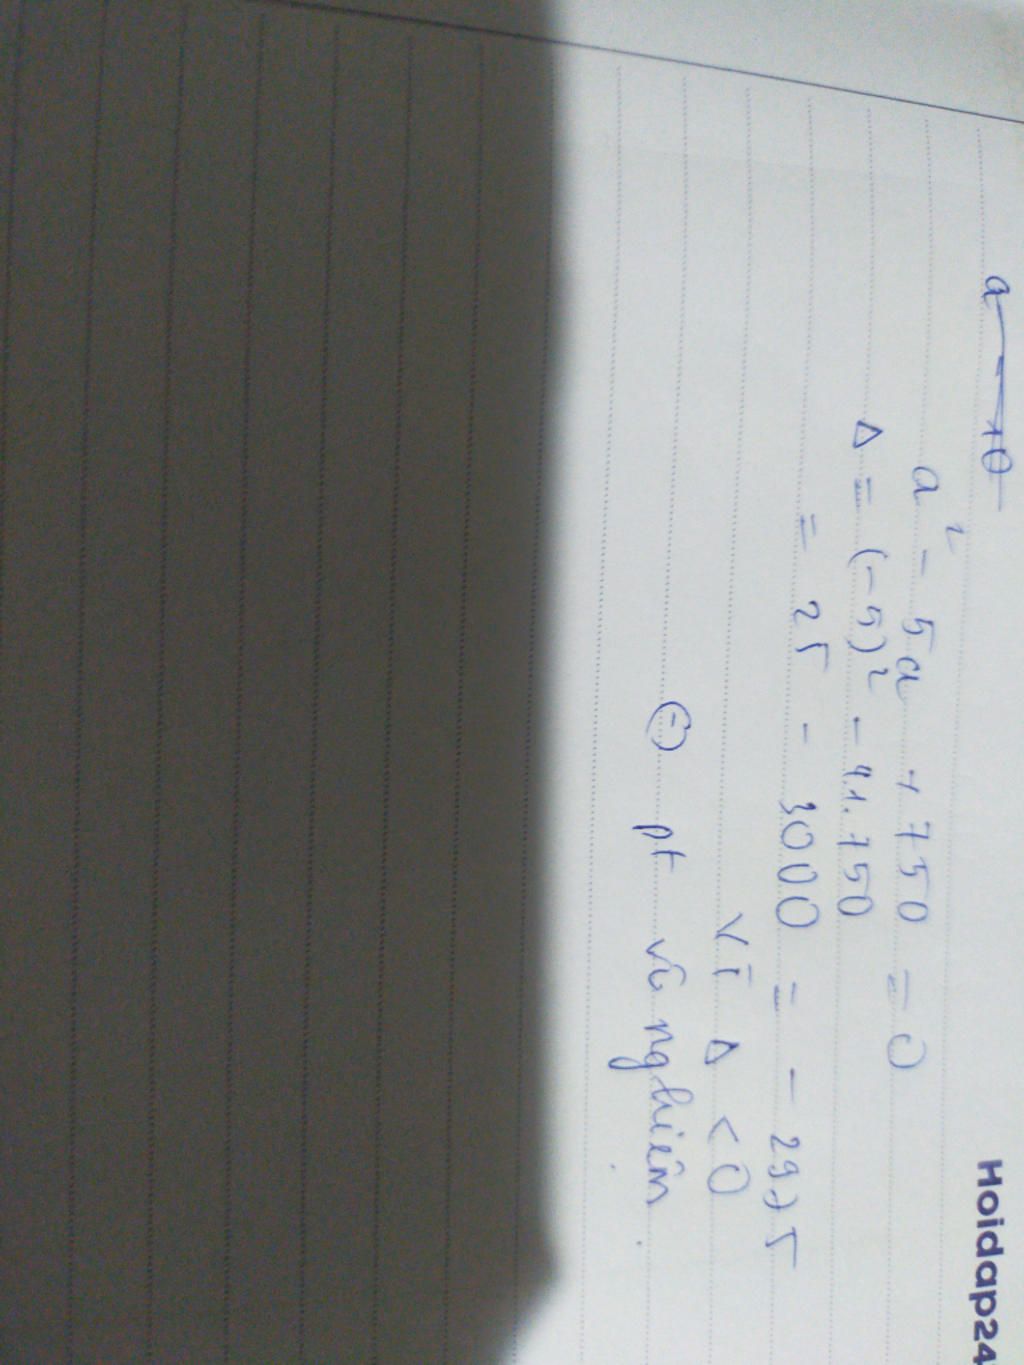 Hoidap24
a² - 5a + 750 = 0
Δ = (-5)² - 4.1.750
= 25 - 3000 = - 2975
Vì Δ < 0
pt vô nghiệm.